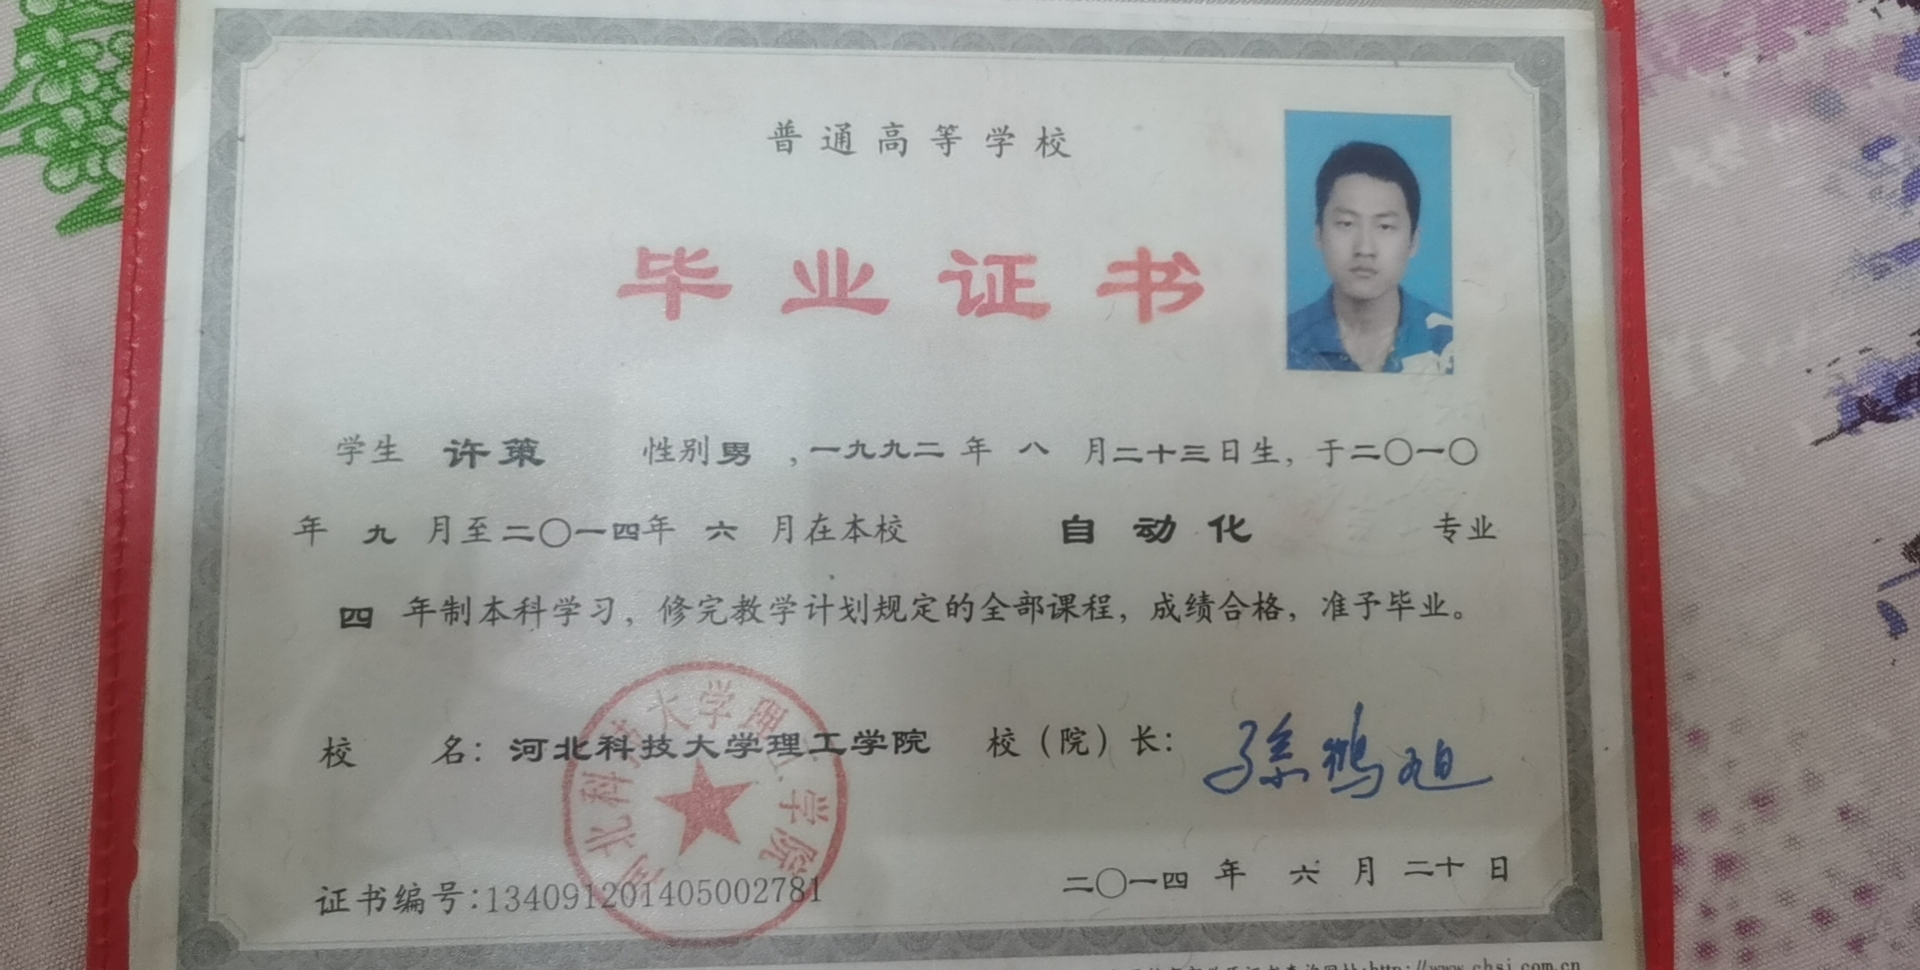 普通高等学校
毕业证书
学生 许策 性别 男 ,一九九二 年 八 月二十三日生, 于二〇一〇
年 九 月至二〇一四年 六 月在本校 自动化 专业
四 年制本科学习, 修完教学计划规定的全部课程, 成绩合格, 准予毕业。
校 名: 河北科技大学理工学院 校(院)长: 孙鹤旭
河北科技大学理工学院
二〇一四 年 六 月 二十 日
证书编号:134091201405002781
查询网址:http://www.chsi.com.cn